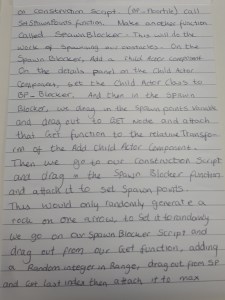 or construction Script. (BP-Floortile) call
SetSpawnPoints function. Make another function
called SpawnBlocker - This will do the
work of Spawning our obstacles. On the
Spawn Blocker, Add a Child Actor Component
On the details panel on the Child Actor
Component, set the Child Actor Class to
BP-Blocker. And then in the Spawn
Blocker, we drag in the Spawn points Variable
and drag out to GET Node and attach
that Get function to the relative Transfo-
rm of the Add Child Actor Component.
Then we go to our Construction Script
and drag in the Spawn Blocker function
and attach it to set Spawn points.
This would only randomly generate a
rock on one arrow, to set it to randomly
we go on Our Spawn Blocker Script and
drag out from our Get function, adding
a Random integer in Range, drag out from SP
and Get last index then attach it to max